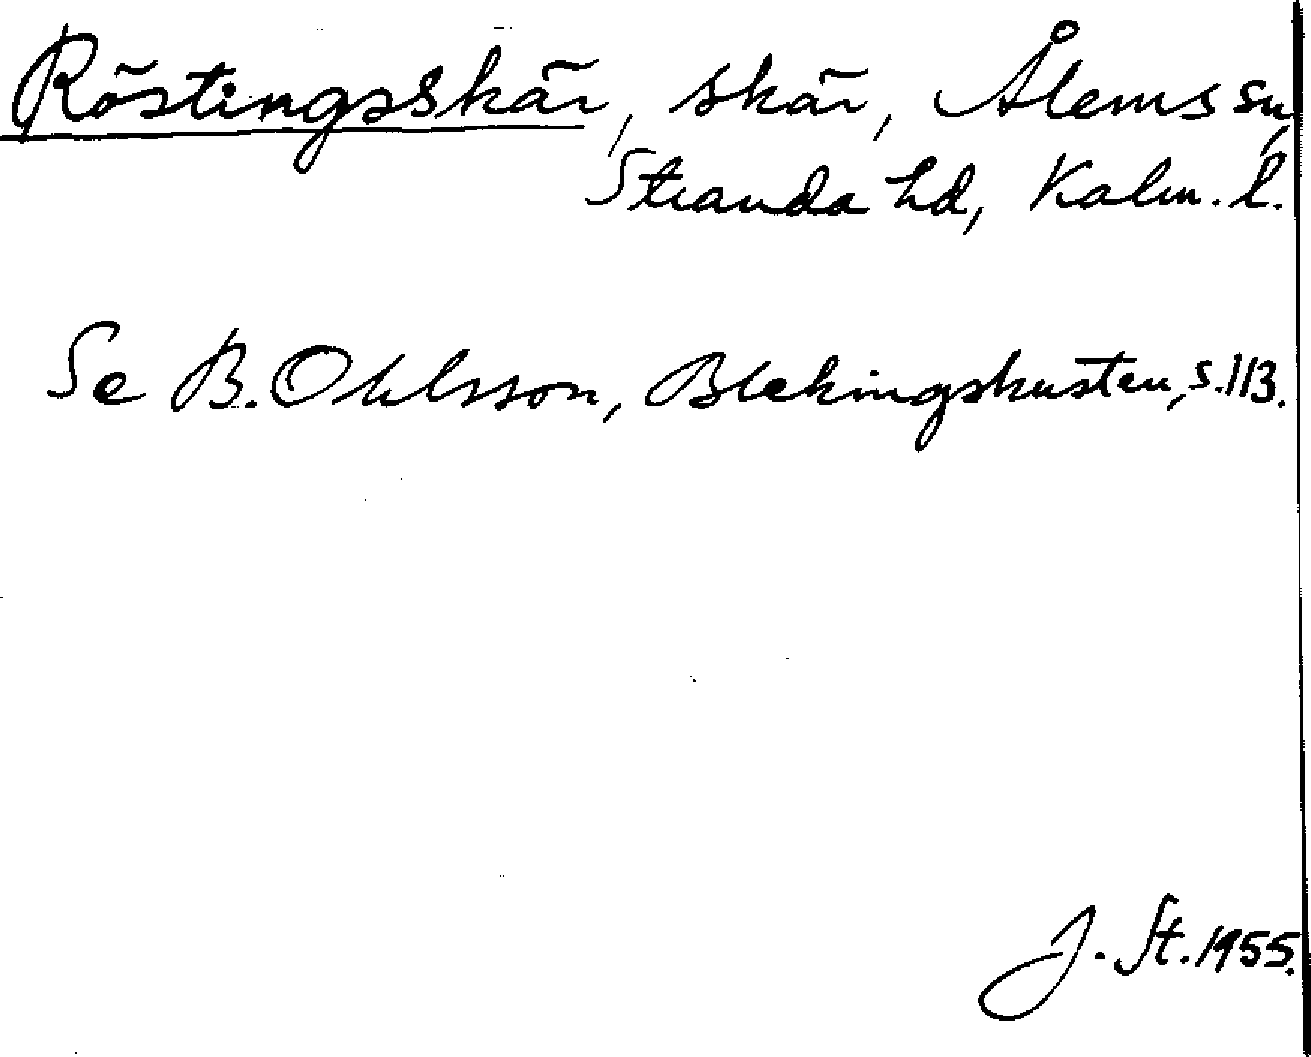 Röstingsskär, skär, Ålems sn,
Stranda hd, Kalm. l.
Se B. Ohlsson, Blekingskusten, s. 113.
J. St. 1955.